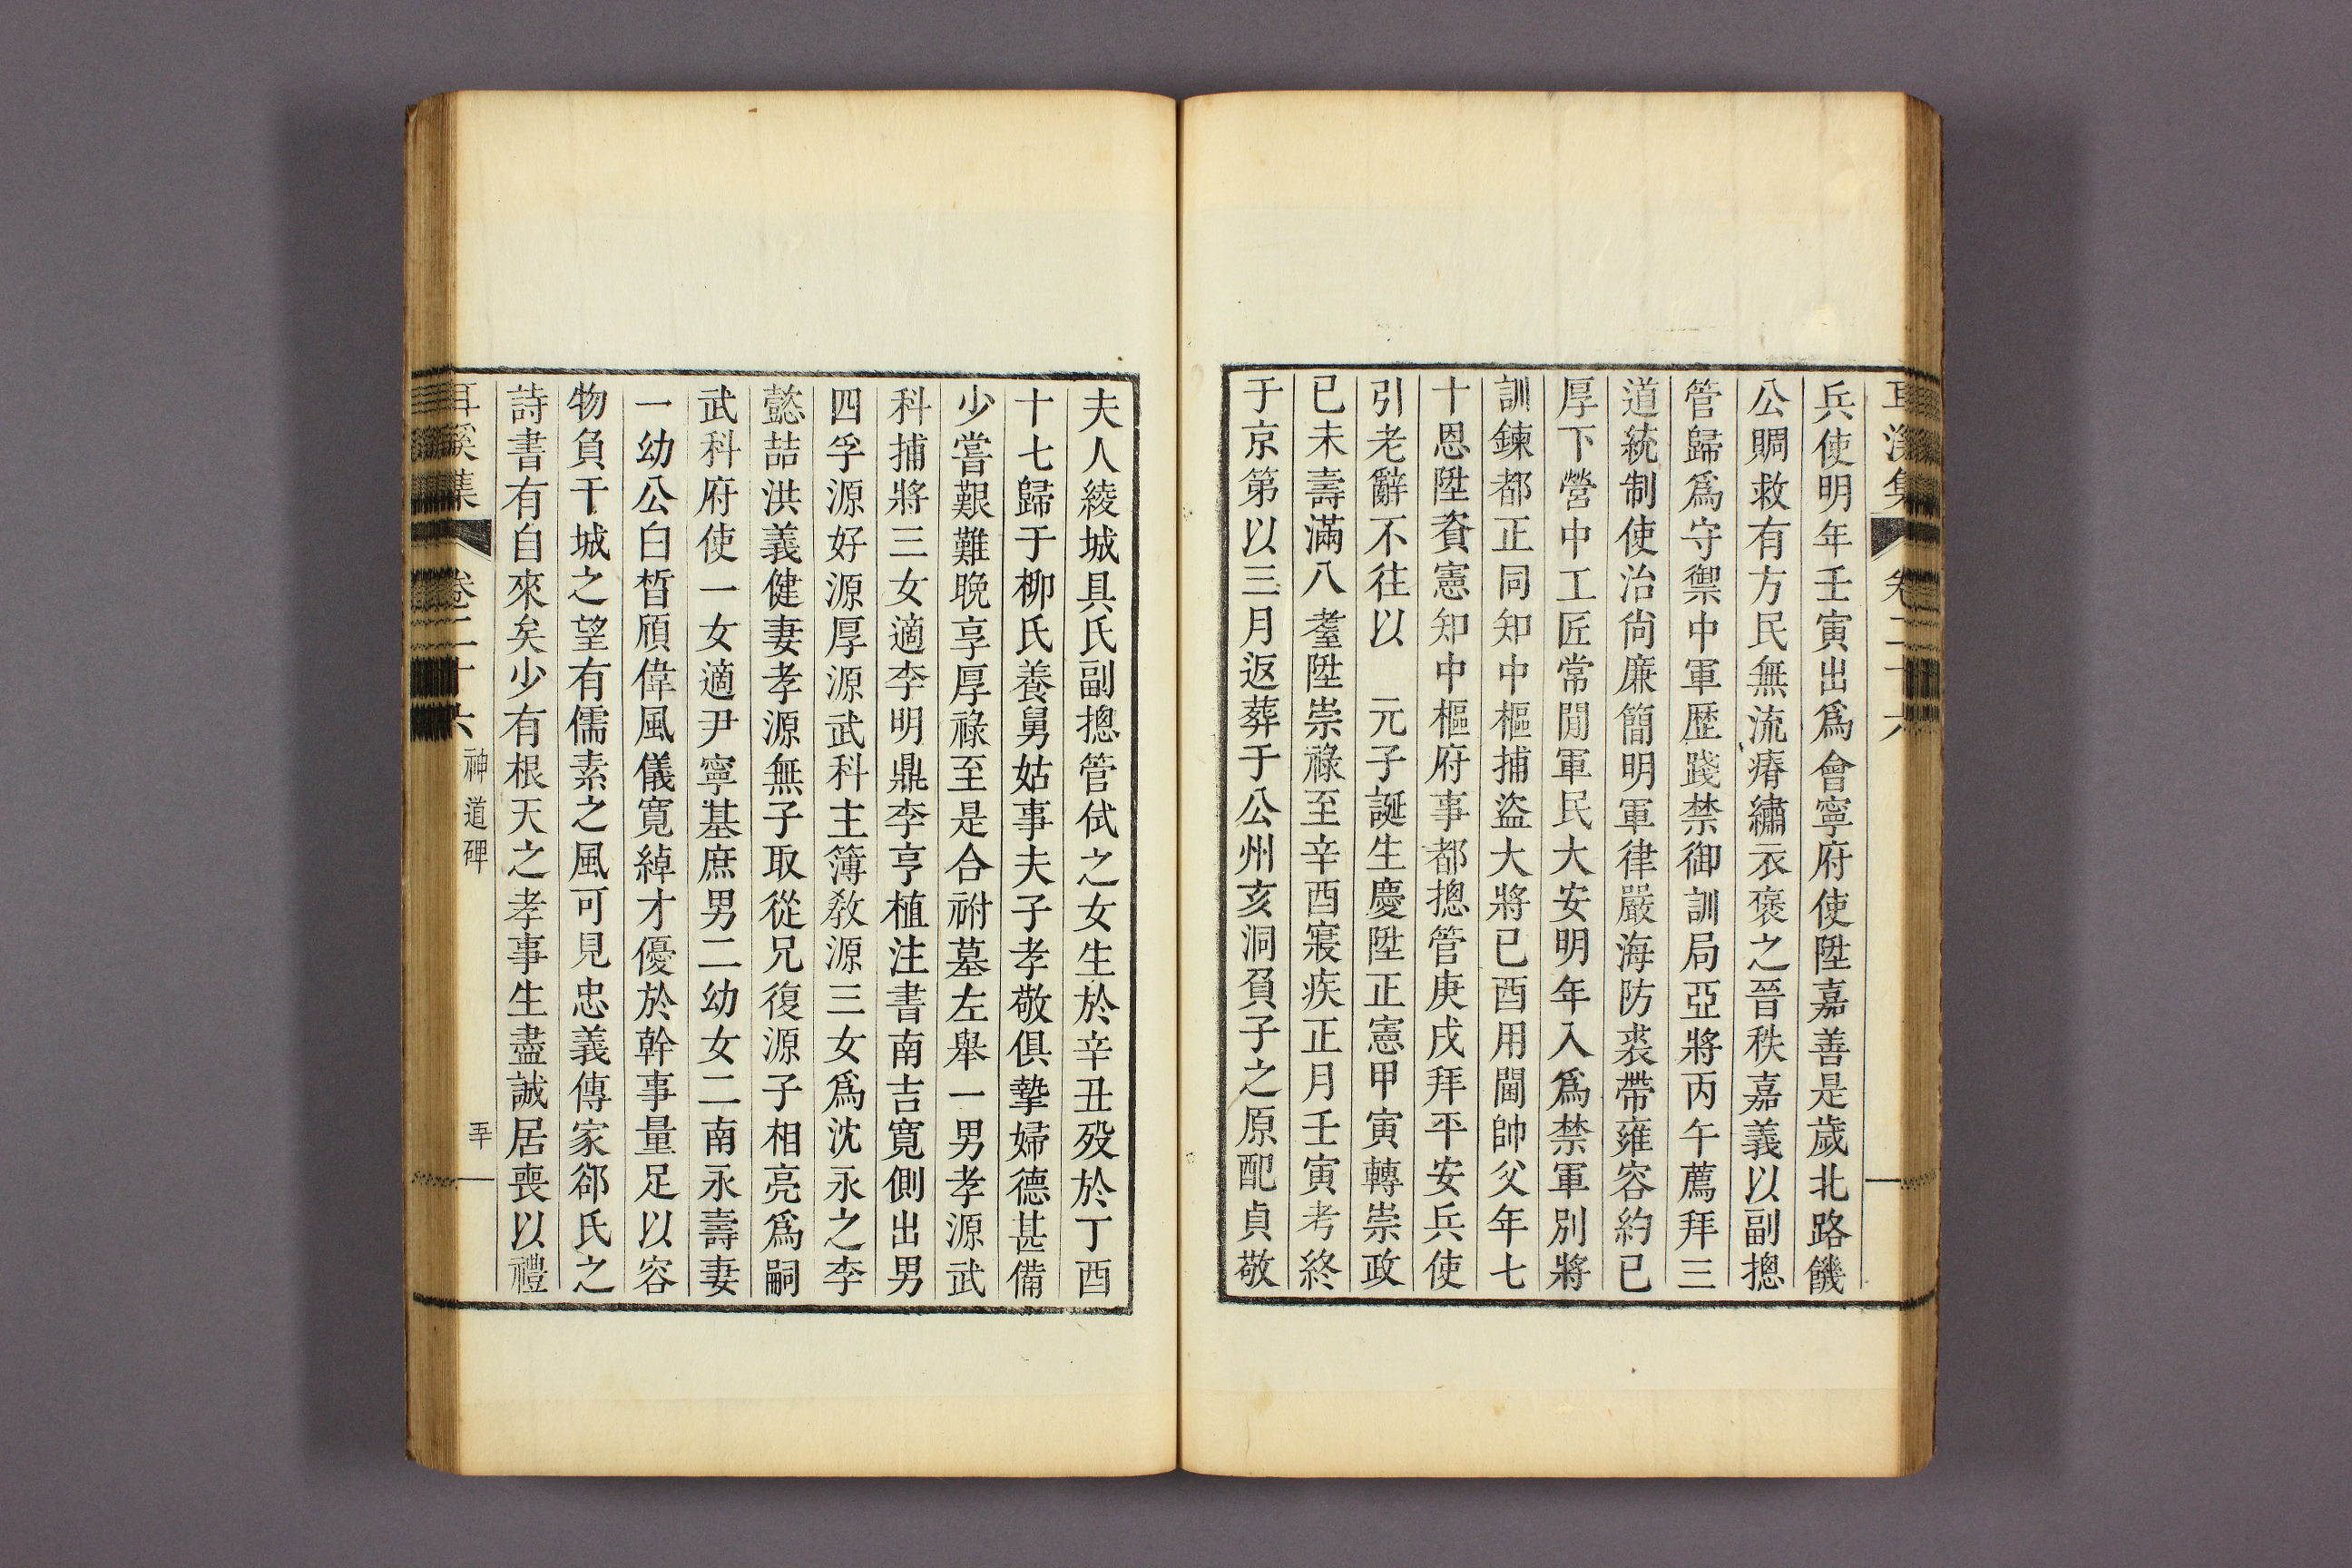 耳溪集 卷二十六
兵使明年壬寅出爲會寧府使陞嘉善是歲北路饑
公賙救有方民無流瘠繡衣褒之晉秩嘉義以副摠
管歸爲守禦中軍歷踐禁御訓局亞將丙午薦拜三
道統制使治尙廉簡明軍律嚴海防裘帶雍容約已
厚下營中工匠常閒軍民大安明年入爲禁軍別將
訓鍊都正同知中樞捕盜大將已酉用閫帥父年七
十恩陞資憲知中樞府事都摠管庚戌拜平安兵使
引老辭不往以 元子誕生慶陞正憲甲寅轉崇政
已未壽滿八耋陞崇祿至辛酉寢疾正月壬寅考終
于京第以三月返葬于公州亥洞負子之原配貞敬
夫人綾城具氏副摠管侙之女生於辛丑歿於丁酉
十七歸于柳氏養舅姑事夫子孝敬俱摯婦德甚備
少嘗艱難晩享厚祿至是合祔墓左舉一男孝源武
科捕將三女適李明鼎李亨植注書南吉寬側出男
四孚源好源厚源武科主簿敎源三女爲沈永之李
懿喆洪義健妻孝源無子取從兄復源子相亮爲嗣
武科府使一女適尹寧基庶男二幼女二南永壽妻
一幼公白晳頎偉風儀寬綽才優於幹事量足以容
物負干城之望有儒素之風可見忠義傳家郤氏之
詩書有自來矣少有根天之孝事生盡誠居喪以禮
耳溪集 卷二十六 神道碑 五十